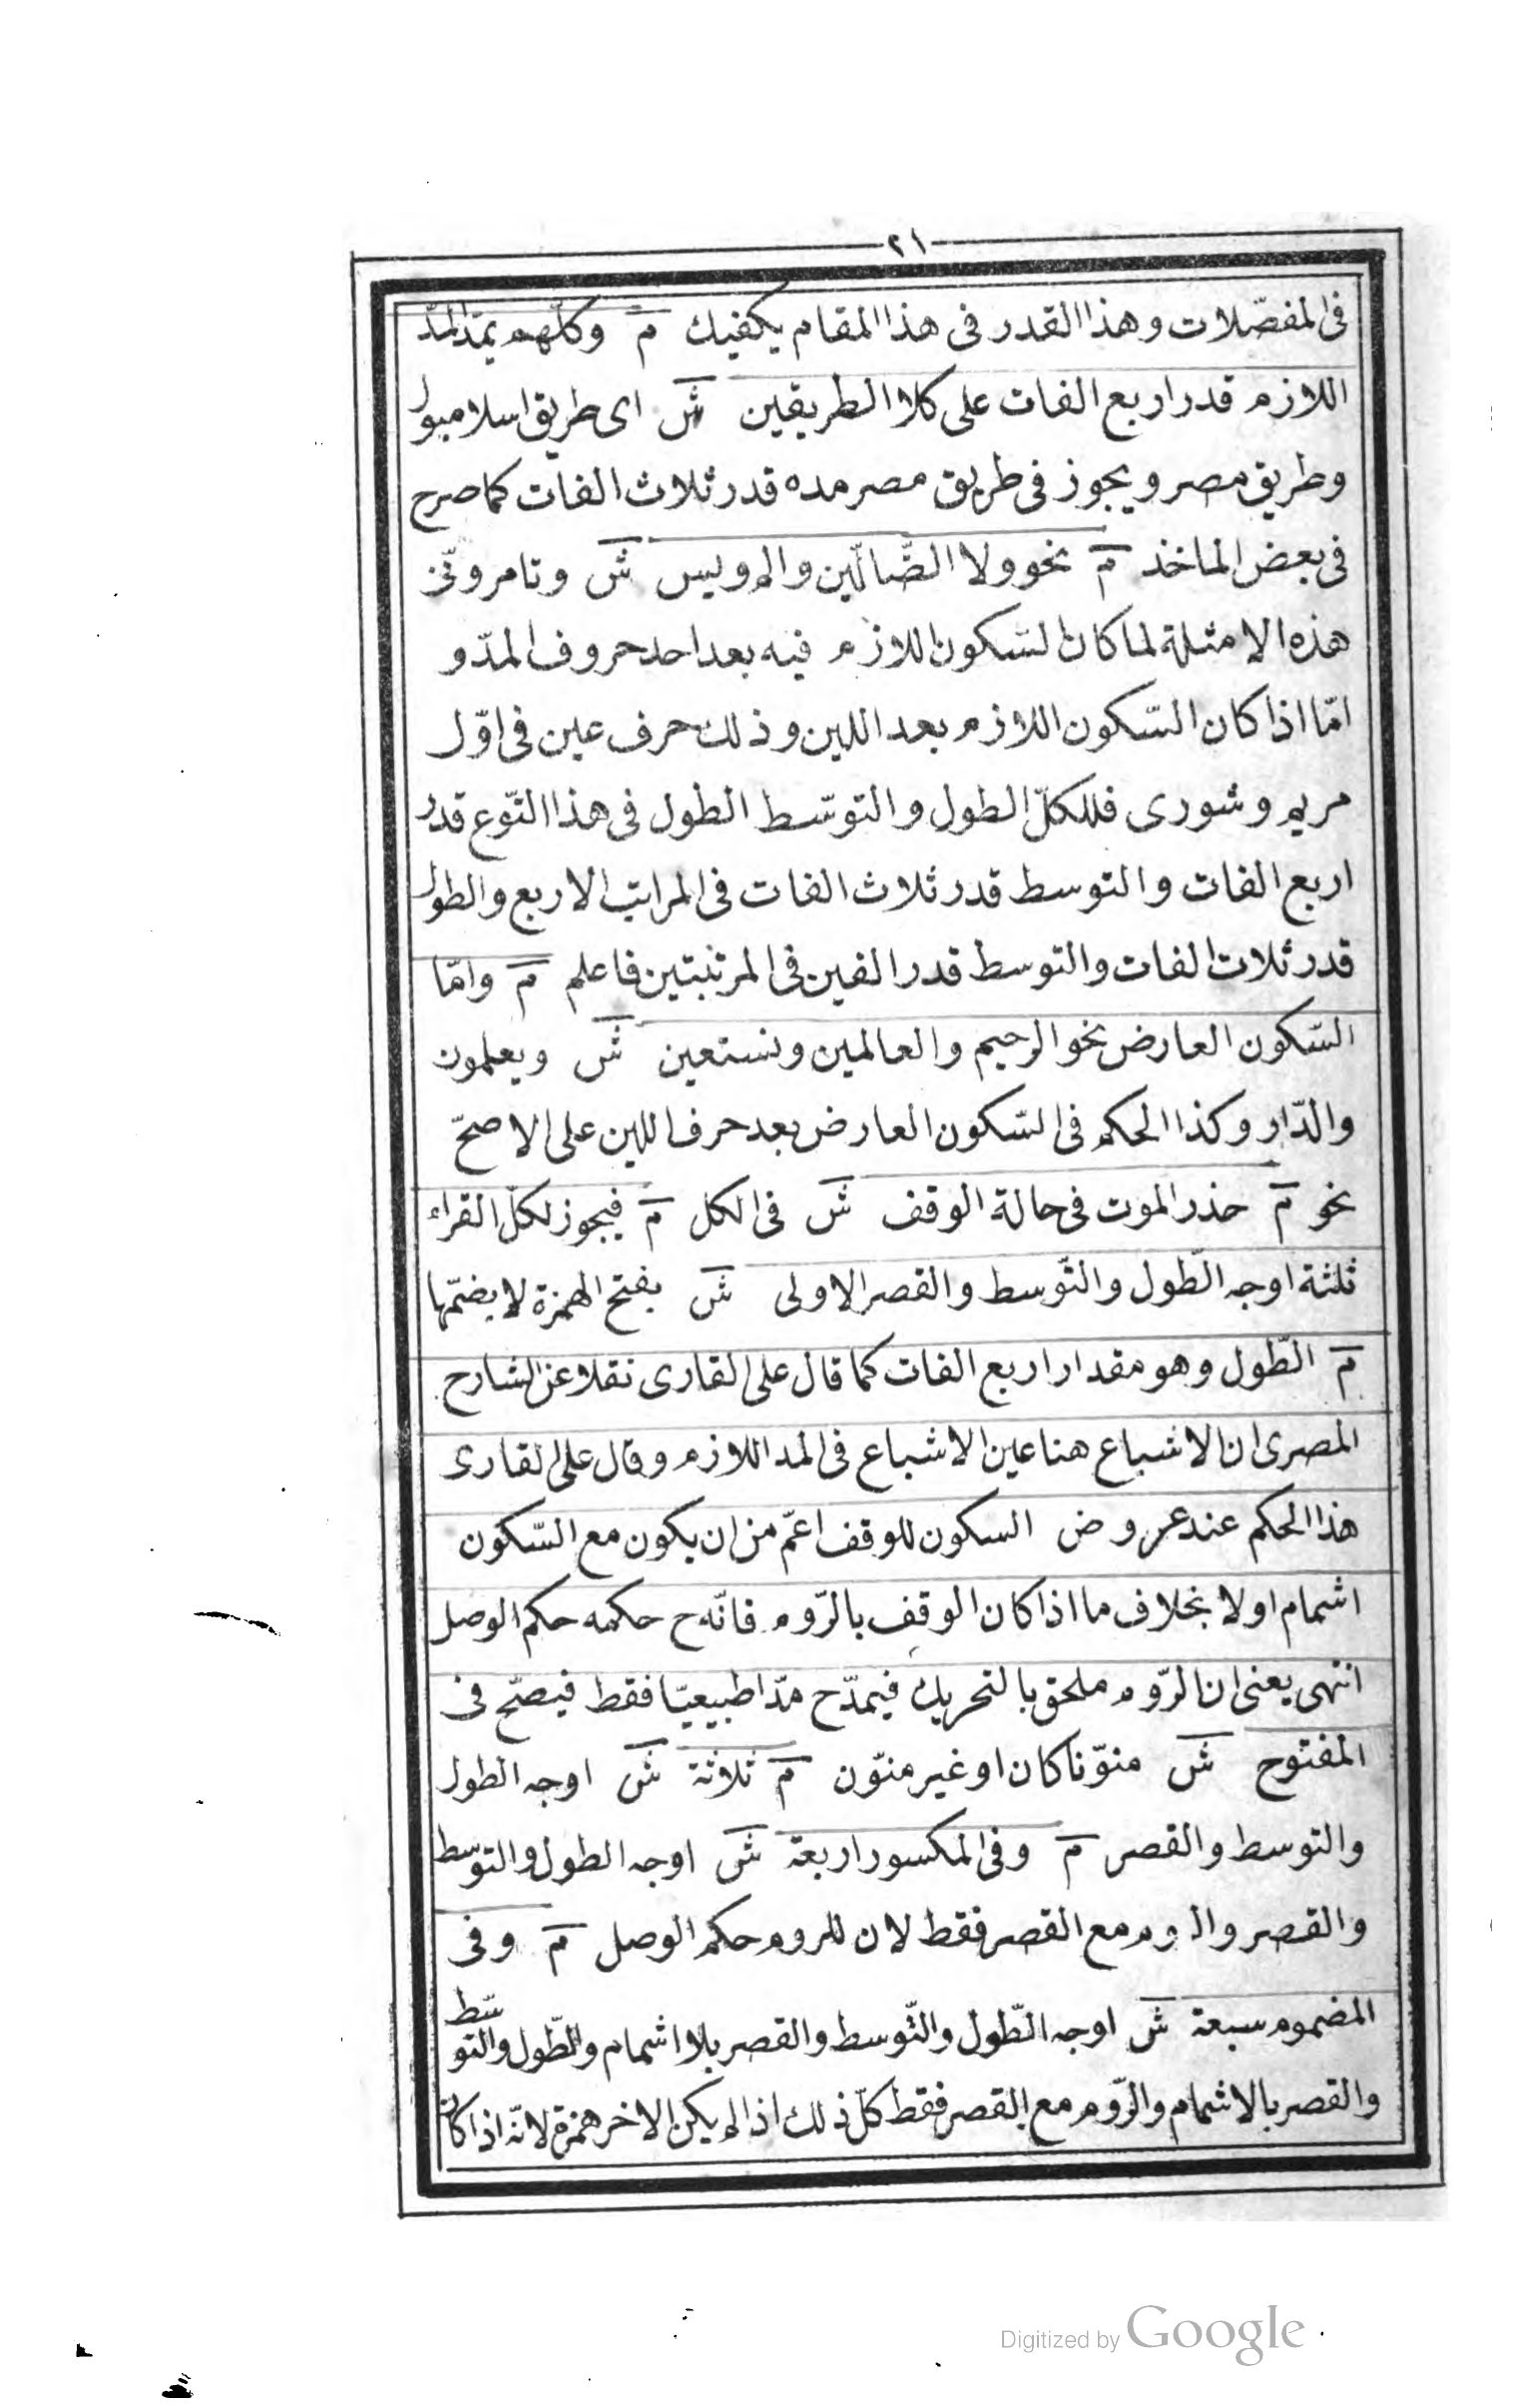 ٢١
فى المفصّلات وهذا القدر فى هذا المقام يكفيك م وكلّهم يمدّ المدّ
اللازم قدر اربع الفات على كلا الطريقين ش اى طريق اسلامبول
وطريق مصر ويجوز فى طريق مصر مده قدر ثلاث الفات كما صرح
فى بعض الماخذ م نحو ولا الضّالّين والم ويس ش وتامرونّى
هذه الامثلة لما كان السّكون اللازم فيه بعد احد حروف المدّ و
امّا اذا كان السّكون اللازم بعد اللين وذلك حرف عين فى اوّل
مريم وشورى فللكلّ الطول والتوسّط الطول فى هذا النّوع قدر
اربع الفات والتوسط قدر ثلاث الفات فى المراتب الاربع والطول
قدر ثلاث الفات والتوسط قدر الفين فى المرتبتين فاعلم م وامّا
السّكون العارض نحو الرحيم والعالمين ونستعين ش ويعلمون
والدّار وكذا الحكم فى السّكون العارض بعد حرف اللين على الاصحّ
نحو م حذر الموت فى حالة الوقف ش فى الكل م فيجوز لكلّ القراء
ثلثة اوجه الطّول والتّوسط والقصر الاولى ش بفتح الهمزة لا بضمّها
م الطّول وهو مقدار اربع الفات كما قال على القارى نقلا عن الشارح
المصرى ان الاشباع هنا عين الاشباع فى المد اللازم وقال على القارى
هذا الحكم عند عروض السكون للوقف اعمّ من ان يكون مع السّكون
اشمام اولا بخلاف ما اذا كان الوقف بالرّوم فانّه ح حكمه حكم الوصل
انتهى يعنى ان الرّوم ملحق بالتحريك فيمدّ ح مدّا طبيعيّا فقط فيصحّ فى
المفتوح ش منوّنا كان او غير منوّن م ثلاثة ش اوجه الطول
والتوسط والقصر م وفى المكسور اربعة ش اوجه الطول والتوسّط
والقصر والروم مع القصر فقط لان للروم حكم الوصل م وفى
المضموم سبعة ش اوجه الطّول والتّوسط والقصر بلا اشمام والطّول والتوسّط
والقصر بالاشمام والرّوم مع القصر فقط كلّ ذلك اذا لم يكن الاخر همزة لانّه اذا كان
Digitized by Google